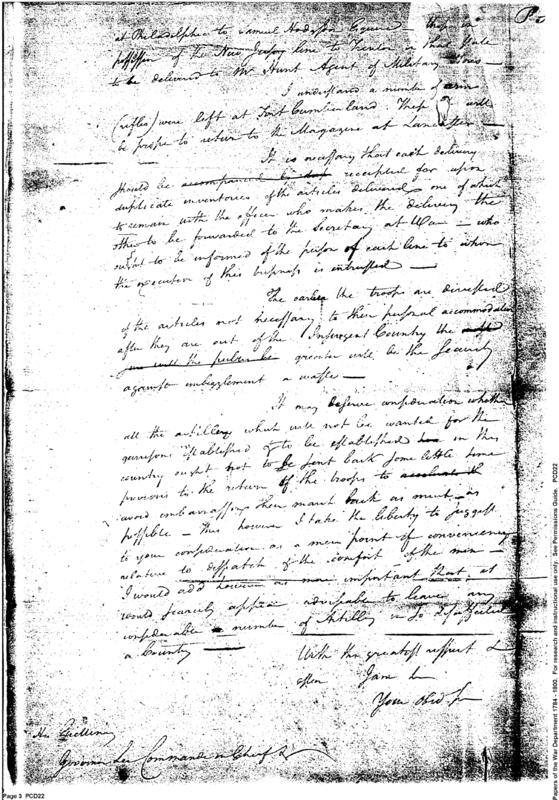 at Philadelphia to Samuel Hodgdon Esquire — those in
possession of the New Jersey line to Trenton in that State
to be delivered to Mr Hunt Agent of Military Stores —
I understand a number of arms
(rifles) were left at Fort Cumberland. These will
be proper to return to the Magazine at Lancaster —
It is necessary that each delivery
should be accompanied receipted for upon
duplicate inventories of the articles delivered one of which
to remain with the officer who makes the delivery the
other to be forwarded to the Secretary at War — who
ought to be informed of the person of each line to whom
the execution of this business is intrusted —
The earlier the troops are divested
of the articles not necessary to their personal accommodation
after they are out of the Insurgent Country the
greater will be the security
against embezzlement & waste —
It may deserve consideration whether
all the artillery which will not be wanted for the
garrisons established & to be established in the
country ought not to be sent back some little time
previous to the return of the troops to
avoid embarrassing their march back as much as
possible — This however I take the liberty to suggest
to your consideration as a mere point of conveniency
relative to dispatch & the comfort of the men —
I would add however as more important that it
would scarcely appear adviseable to leave any
considerable number of Artillery in so disaffected
a Country —
With the greatest respect &
esteem I am
Your Obed Ser
His Excellency
Governor Lee Commander in Chief &
Page 3 PCD22
Papers of the War Department 1784 - 1800. For research and instructional use only. See Permissions Guide. PCD22